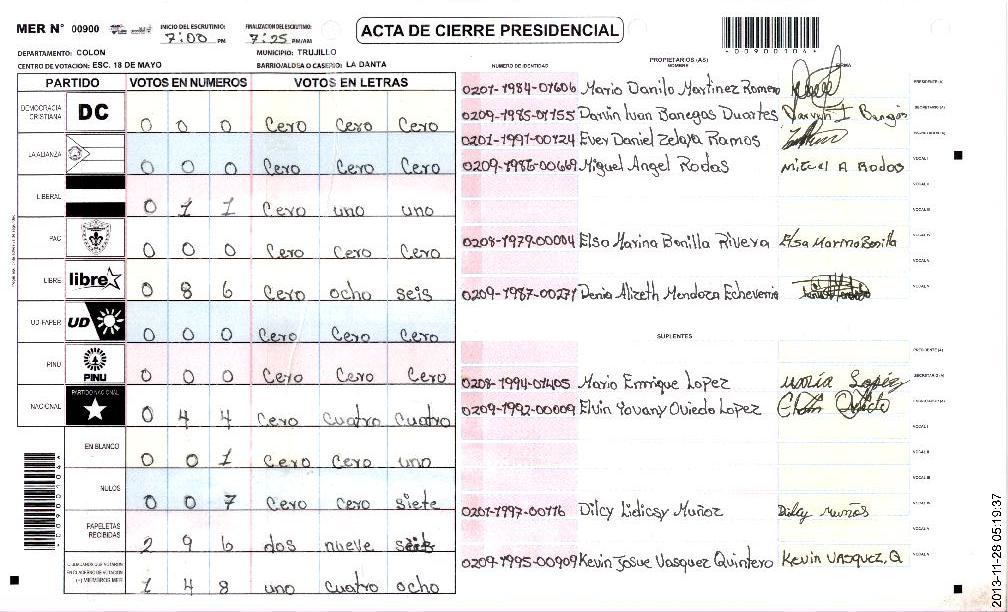 MER N° 00900
INICIO DEL ESCRUTINIO: 7:00 PM
FINALIZACION DEL ESCRUTINIO: 7:25 PM/AM
ACTA DE CIERRE PRESIDENCIAL
*00900104*
DEPARTAMENTO: COLON
MUNICIPIO: TRUJILLO
CENTRO DE VOTACION: ESC. 18 DE MAYO
BARRIO/ALDEA O CASERIO: LA DANTA
PARTIDO VOTOS EN NUMEROS VOTOS EN LETRAS
DEMOCRACIA CRISTIANA DC 0 0 0 Cero Cero Cero
LA ALIANZA 0 0 0 Cero Cero Cero
LIBERAL 0 1 1 Cero uno uno
PAC 0 0 0 Cero Cero Cero
LIBRE libre 0 8 6 Cero ocho seis
UD FAPER UD 0 0 0 Cero Cero Cero
PINU PINU 0 0 0 Cero Cero Cero
NACIONAL PARTIDO NACIONAL 0 4 4 Cero Cuatro Cuatro
EN BLANCO 0 0 1 Cero Cero uno
NULOS 0 0 7 Cero Cero siete
PAPELETAS RECIBIDAS 2 9 6 dos nueve seis
CIUDADANOS QUE VOTARON EN CUADERNO DE VOTACION (+) MIEMBROS MER 1 4 8 uno cuatro ocho
NUMERO DE IDENTIDAD PROPIETARIOS (AS) NOMBRE FIRMA
0201-1984-01606 Mario Danilo Martinez Romero PRESIDENTE (A)
0209-1985-01155 Darvin Ivan Banegas Duartes SECRETARIO (A)
0201-1991-00724 Ever Daniel Zelaya Ramos
0209-1986-00669 Miguel Angel Rodas Miguel A Rodas VOCAL I
VOCAL II
VOCAL III
0208-1979-00084 Elsa Marina Bonilla Rivera Elsa Marina Bonilla VOCAL IV
VOCAL V
0209-1987-00237 Denia Alizeth Mendoza Echeverria VOCAL VI
SUPLENTES
PRESIDENTE (A)
0208-1994-01405 Mario Enrrique Lopez Maria Lopez SECRETARIO (A)
0209-1992-00009 Elvin Yovany Oviedo Lopez
VOCAL I
VOCAL II
VOCAL III
0201-1997-00116 Dilcy Lidicsy Muñoz Dilcy Muños VOCAL IV
VOCAL V
0209-1995-00909 Kevin Josue Vasquez Quintero Kevin VASQUEZ, Q VOCAL VI
*00900104*
2013-11-28 05:19:37